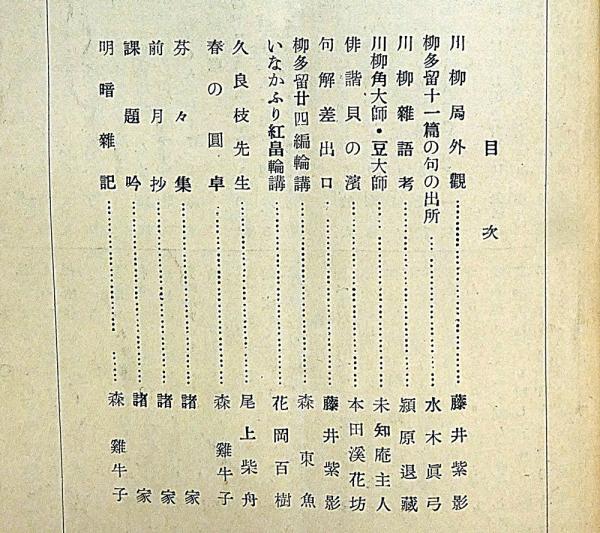 目次
川柳局外觀……藤井紫影
柳多留十一篇の句の出所……水木眞弓
川柳雜語考……潁原退藏
川柳角大師・豆大師……未知庵主人
俳諧貝の濱……本田溪花坊
句解差出口……藤井紫影
柳多留廿四編輪講……森東魚
いなかふり紅畠輪講……花岡百樹
久良枝先生……尾上柴舟
春の圓卓……森雞牛子
芬々集……諸家
前月抄……諸家
課題吟……諸家
明暗雜記……森雞牛子